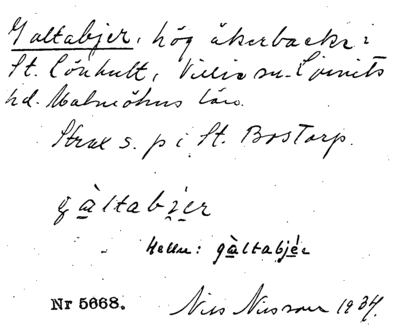 Galtabjer, hög åkerbacke i
St. Lönhult, Villie sn. Ljunits
hd. Malmöhus län.
Strax s. p i St. Bostorp.
gàltabjer
Heller: gàltabjér
Nr 5668. Nils Nilsson 1934.